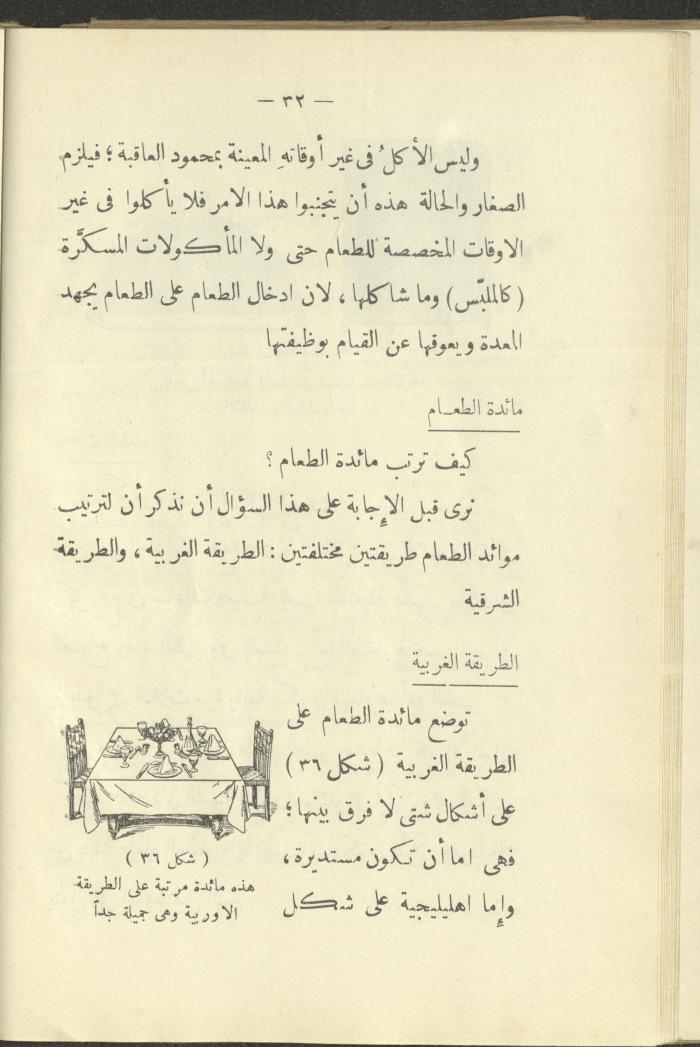 — ٣٢ —
وليس الأكلُ فى غير أوقاتهِ المعينة بمحمود العاقبة ؛ فيلزم
الصغار والحالة هذه أن يتجنبوا هذا الامر فلا يأكلوا فى غير
الاوقات المخصصة للطعام حتى ولا المأكولات المسكَّرة
( كالملبّس ) وما شاكلها ، لان ادخال الطعام على الطعام يجهد
المعدة ويعوقها عن القيام بوظيفتها
مائدة الطعام
كيف ترتب مائدة الطعام ؟
نرى قبل الإِجابة على هذا السؤال أن نذكر أن لترتيب
موائد الطعام طريقتين مختلفتين : الطريقة الغربية ، والطريقة
الشرقية
الطريقة الغربية
توضع مائدة الطعام على
الطريقة الغربية ( شكل ٣٦ )
على أشكال شتى لا فرق بينها ؛
فهى اما أن تكون مستديرة ،
وإِما اهليليجية على شكل
( شكل ٣٦ )
هذه مائدة مرتبة على الطريقة
الاوربية وهى جميلة جداً